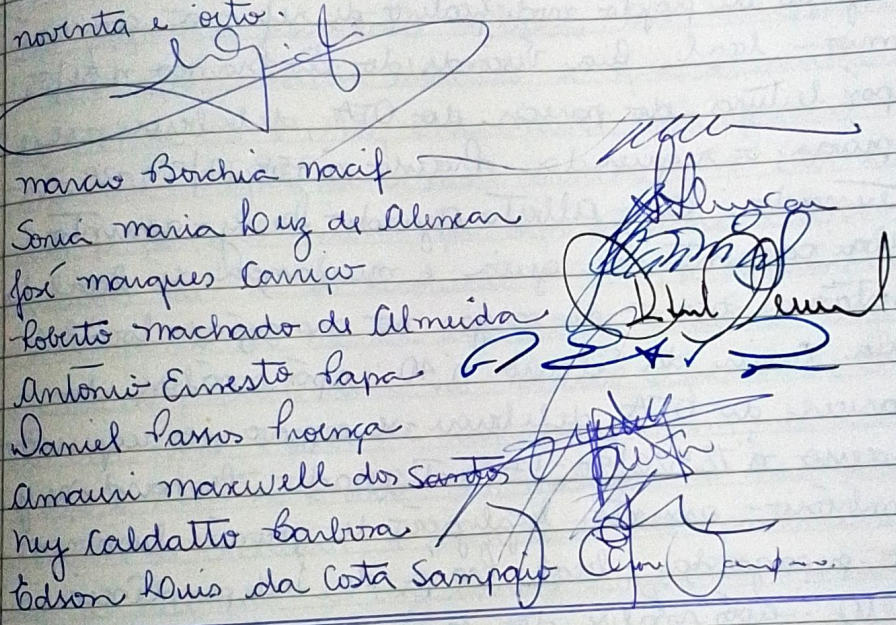 noventa e oito
marcio Borchia nacif
Sonia maria Luz de alencar
José marques Carriço
Roberto machado de almeida
Antônio Ernesto Papa
Daniel Passos Proença
amauri maxwell dos santos
ney Caldatto Barbosa
Edson Luis da Costa Sampaio